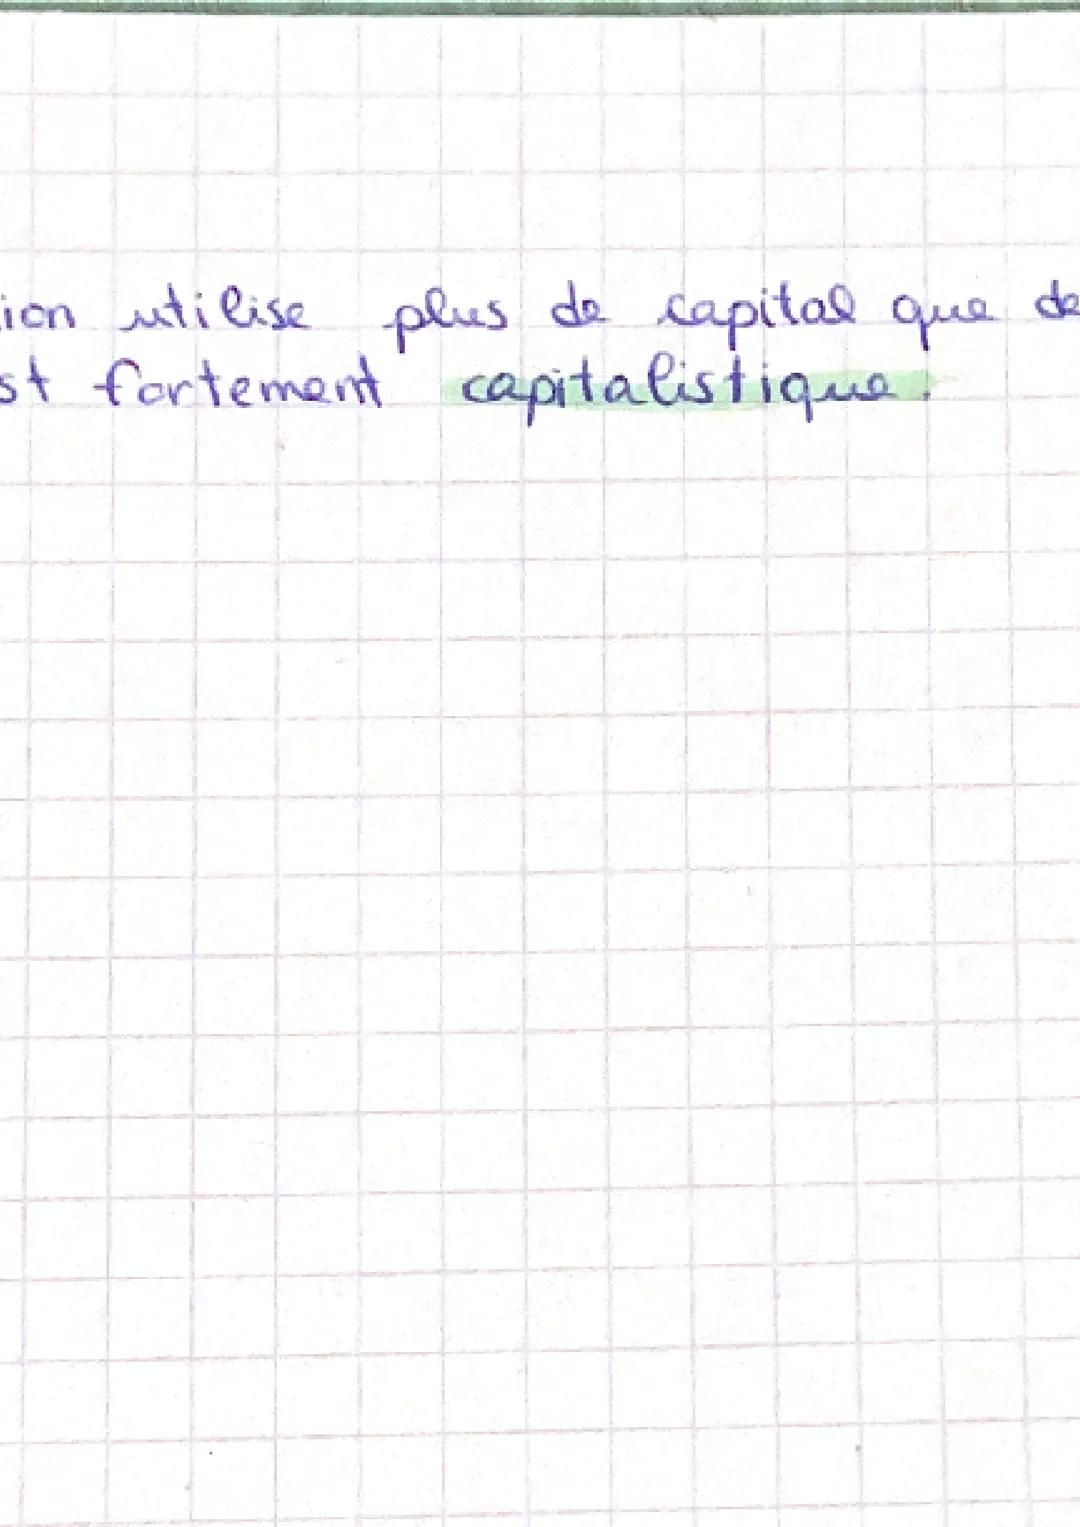 ion utilise plus de capital que de
st fortement capitalistique.